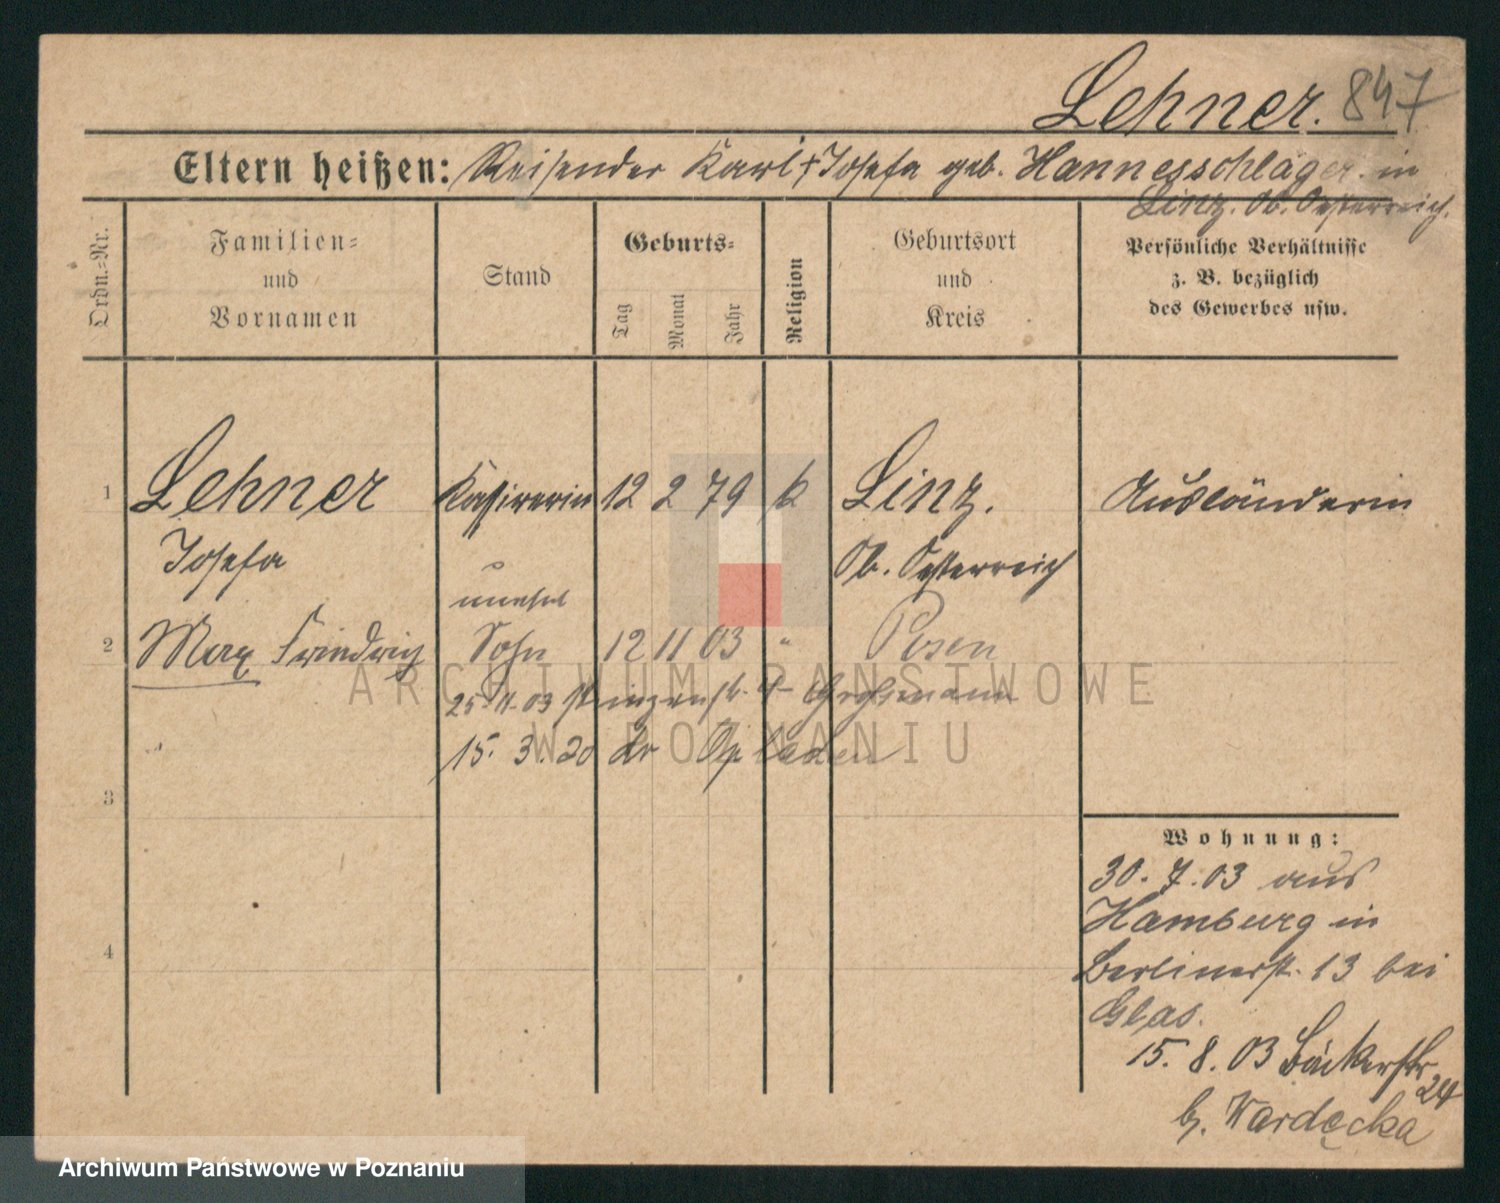 Lehner. 847
Eltern heißen: Reisender Karl + Josefa geb. Hannesschläger in
Linz. Ob. Oesterreich.
Ordn.-Nr.
Familien-
und
Vornamen
Stand
Geburts-
Tag
Monat
Jahr
Religion
Geburtsort
und
Kreis
Persönliche Verhältnisse
z. B. bezüglich
des Gewerbes usw.
1 Lehner Kassirerin 12 2 79 k Linz. Ausländerin
Josefa Ob. Oesterreich
unehel
2 Max Friedrich Sohn 12 11 03 " Posen
25.11.03
15. 3. 20 Opladen
3
4
Wohnung:
30. 7. 03 aus
Hamburg in
Berlinerst. 13 bei
Glas.
15. 8. 03 Bäckerstr
24
b. Wardęcka
ARCHIWUM PAŃSTWOWE
W POZNANIU
Archiwum Państwowe w Poznaniu